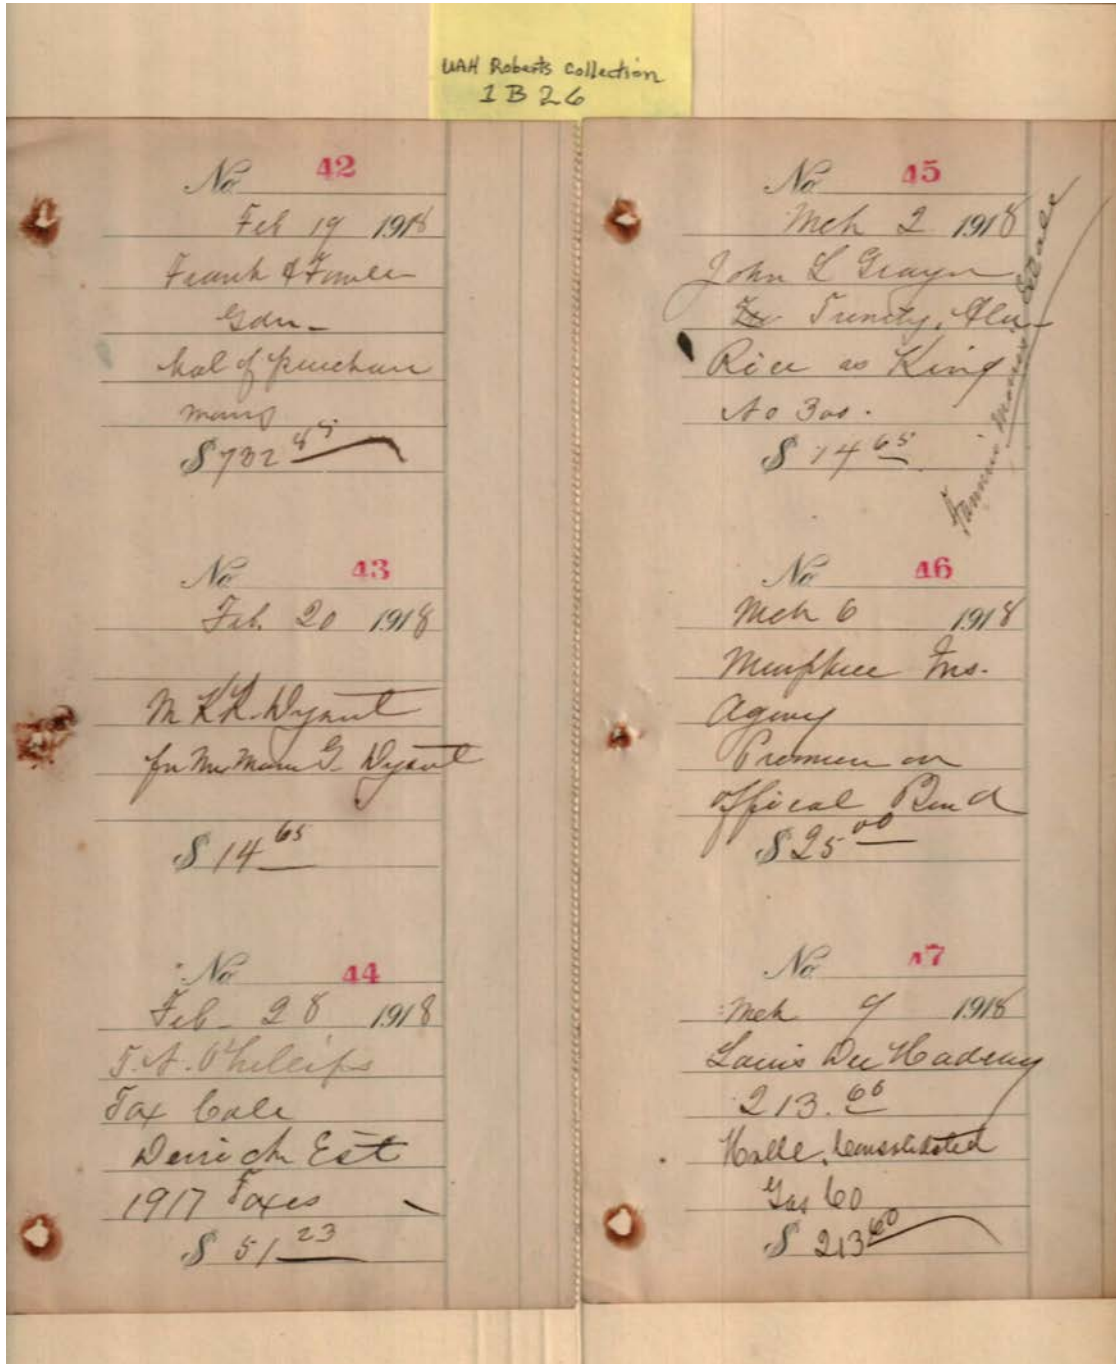 UAH Roberts Collection
1 B 26
No 42
Feb 19 1918
Frank & Fowler
Gdn
bal of purchase
money
$ 732 85
No 43
Feb. 20 1918
Wyant
for G. Wyant
$ 14 65
No 44
Feb 28 1918
T.A. Phillips
Tax Cole
Derrick Est
1917 Taxes
$ 51 23
No 45
Mch 2 1918
John L Grayn
Trinity, Ala
Rice as King
No 300.
$ 14 65
No 46
Mch 6 1918
Ins.
Agency
Premium on
Offical Bond
$ 25 00
No 47
Mch 9 1918
Louis Dee
213. 60
Halle, Consolidated
Gas Co
$ 213 60